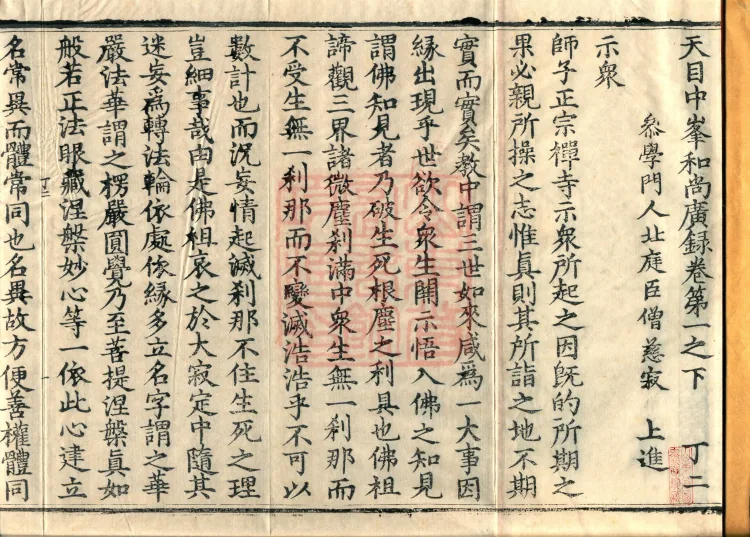 天目中峯和尚廣錄卷第一之下 丁二
叅學門人北庭臣僧慈寂 上進
示衆
師子正宗禪寺示衆所起之因旣的所期之
果必親所操之志惟眞則其所詣之地不期
實而實矣教中謂三世如來咸爲一大事因
緣出現乎世欲令衆生開示悟入佛之知見
謂佛知見者乃破生死根塵之利具也佛祖
諦觀三界諸微塵刹滿中衆生無一刹那而
不受生無一刹那而不變滅浩浩乎不可以
數計也而況妄情起滅刹那不住生死之理
豈細事哉由是佛祖哀之於大寂定中隨其
迷妄爲轉法輪依處依緣多立名字謂之華
嚴法華謂之楞嚴圓覺乃至菩提涅槃眞如
般若正法眼藏涅槃妙心等一依此心建立
名常異而體常同也名異故方便善權體同
丁二